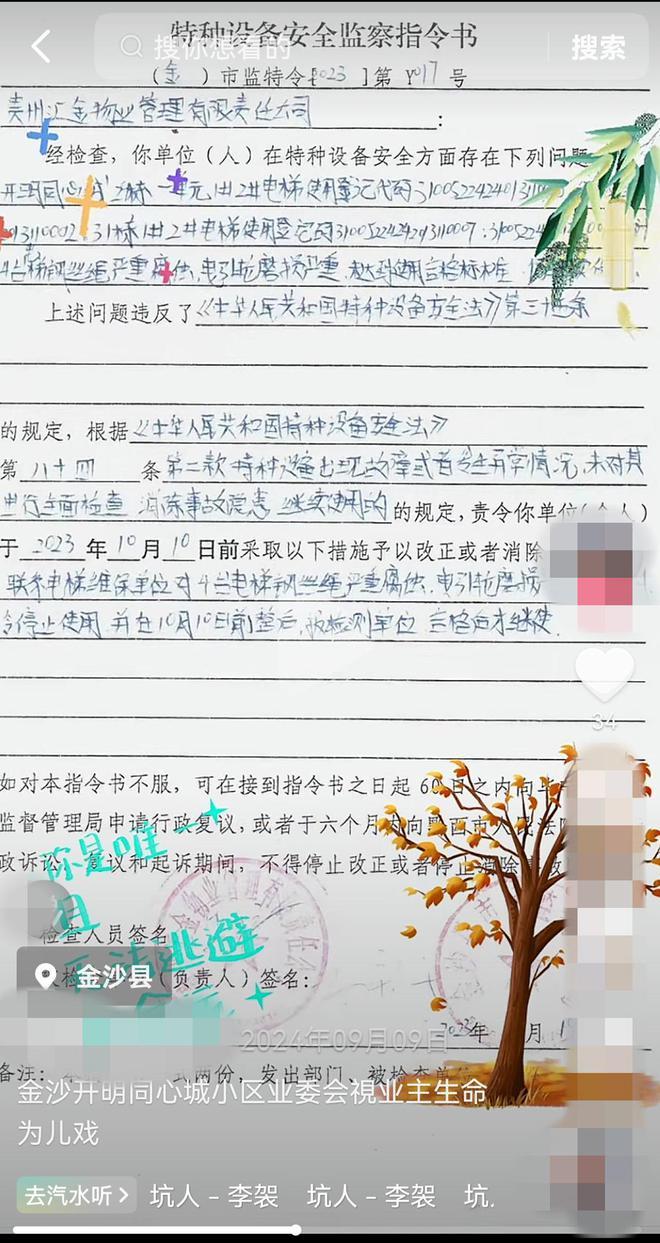 特种设备安全监察指令书
搜索你想看的
搜索
（金）市监特令[2023]第 1017 号
贵州汇金物业管理有限责任公司：
经检查，你单位（人）在特种设备安全方面存在下列问题
开明同心城 2栋一单元1#2#电梯使用登记代码
31栋1#2#电梯使用登记码
4台梯钢丝绳严重腐蚀、曳引轮磨损严重
上述问题违反了《中华人民共和国特种设备安全法》第三十 条
的规定，根据《中华人民共和国特种设备安全法》
第八十四条第二款特种设备出现故障或者发生异常情况，未对其
进行全面检查 消除事故隐患 继续使用的的规定，责令你单位（ 人）
于2023年10月10日前采取以下措施予以改正或者消除
联系电梯维保单位对4台电梯钢丝绳严重腐蚀、曳引轮磨损
停止使用 并在10月10日前整 后，报检测单位 合格后才继续使
如对本指令书不服，可在接到指令书之日起 60 日之内向毕
监督管理局申请行政复议，或者于六个月内向黔西市人民法
政诉讼。复议和起诉期间，不得停止改正或者停止消除
你是唯一
且
无法逃避
检查人员签名
金沙县
（负责人）签名：
2024年09月09日
2023年 月
备注： 式两份，发出部门、被检查单位
金沙开明同心城小区业委会視业主生命
为儿戏
34
去汽水听 >
坑人 - 李袈 坑人 - 李袈 坑.